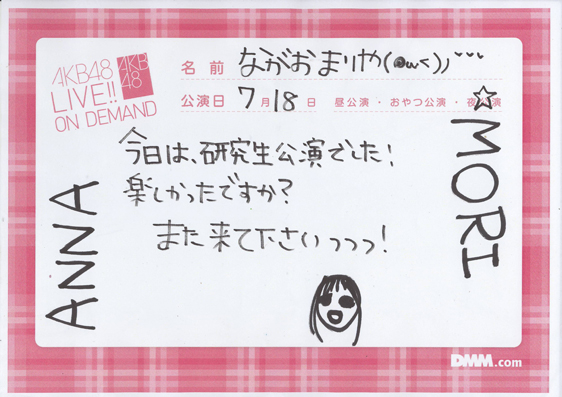 AKB48
LIVE!!
ON DEMAND
AKB
48
名前 ながおまりや(๑ω<)ノ
公演日 7月18日 昼公演・おやつ公演・夜公演
☆MORI
今日は、研究生公演でした!
楽しかったですか?
また来て下さいっっっ!
ANNA
DMM.com